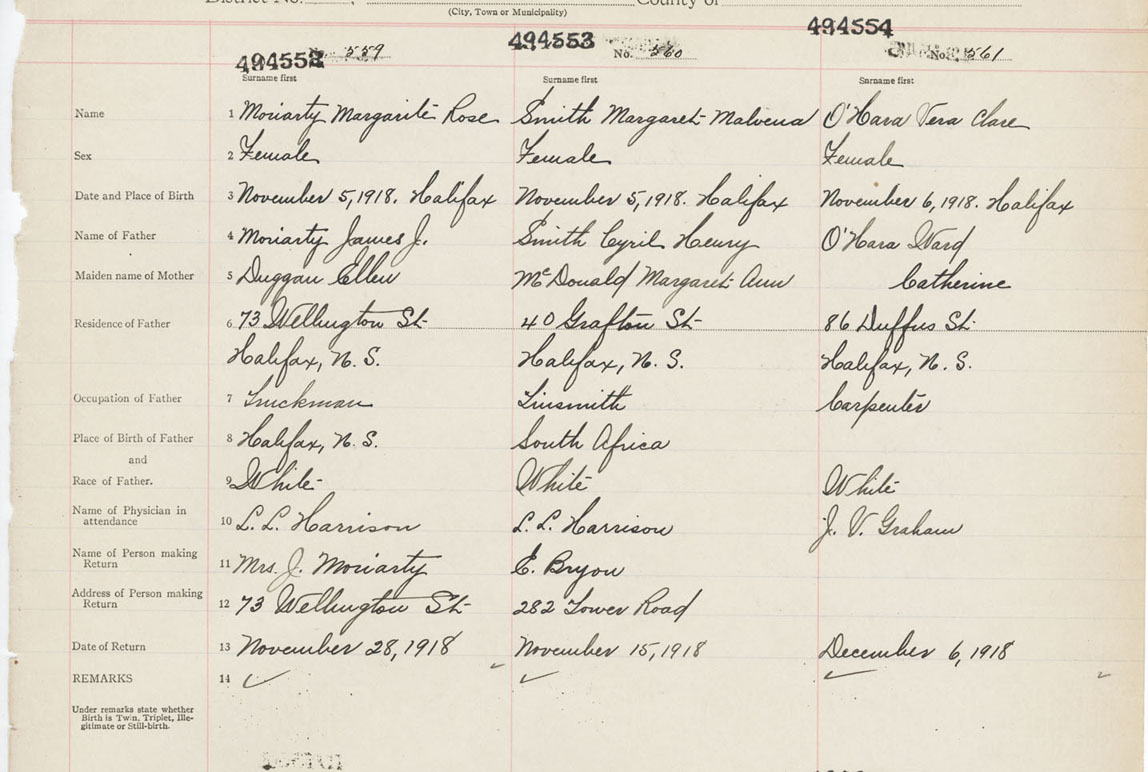 District No. County of
(City, Town or Municipality)
494552 No. 559 494553 No. 560 494554 No. 561
Surname first Surname first Surname first
Name 1 Moriarty Margarite Rose Smith Margaret Malvena O'Hara Vera Clare
Sex 2 Female Female Female
Date and Place of Birth 3 November 5, 1918. Halifax November 5, 1918. Halifax November 6, 1918. Halifax
Name of Father 4 Moriarty James J. Smith Cyril Henry O'Hara Ward
Maiden name of Mother 5 Duggan Ellen McDonald Margaret Ann Catherine
Residence of Father 6 73 Wellington St 40 Grafton St 86 Duffus St.
Halifax, N. S. Halifax, N. S. Halifax, N. S.
Occupation of Father 7 Truckman Tinsmith Carpenter
Place of Birth of Father 8 Halifax, N. S. South Africa
and
Race of Father. 9 White White White
Name of Physician in attendance 10 L. L. Harrison L. L. Harrison J. V. Graham
Name of Person making Return 11 Mrs. J. Moriarty E. Bryon
Address of Person making Return 12 73 Wellington St 282 Tower Road
Date of Return 13 November 28, 1918 November 15, 1918 December 6, 1918
REMARKS 14
Under remarks state whether
Birth is Twin, Triplet, Ille-
gitimate or Still-birth.